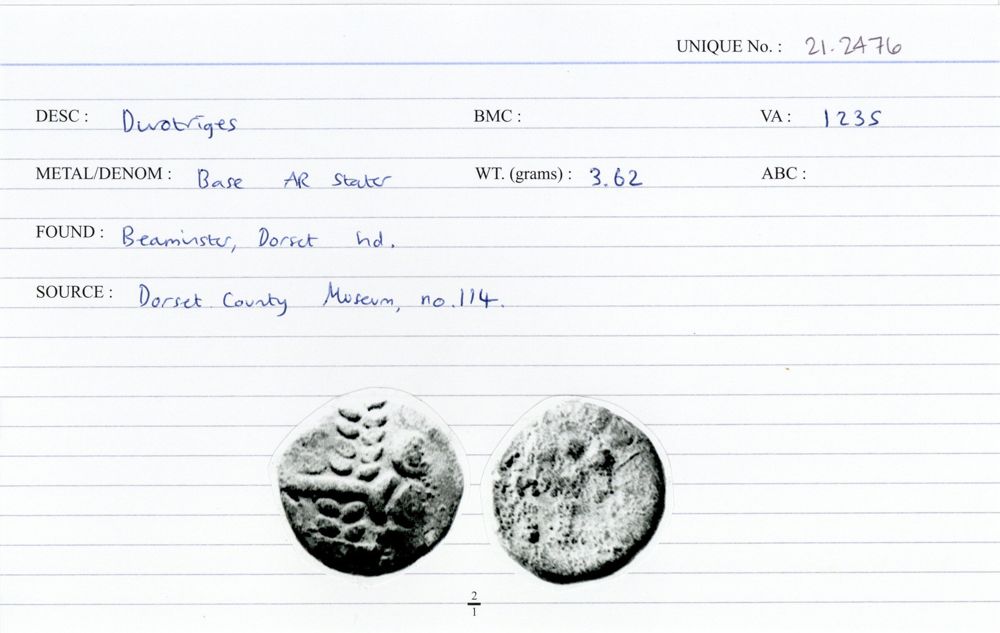 UNIQUE No. : 21.2476
DESC : Durotriges BMC : VA : 1235
METAL/DENOM : Base AR Stater WT. (grams) : 3.62 ABC :
FOUND : Beaminster, Dorset hd.
SOURCE : Dorset County Museum, no.114.
2
1